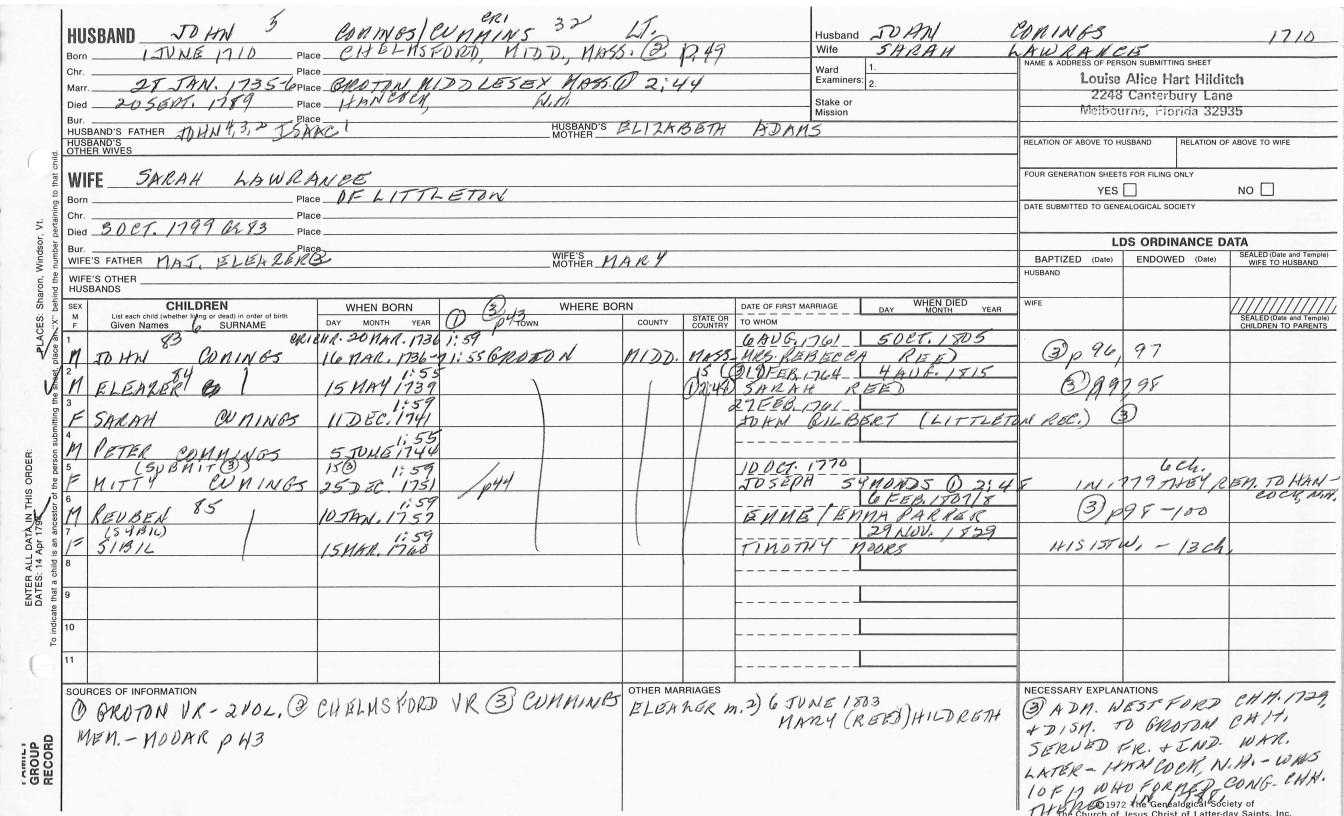 HUSBAND JOHN 5 COMINGS/CUMMINS 32 LT.
Born 1 JUNE 1710 Place CHELMSFORD, MIDD., MASS. ② p.49
Chr. Place
Marr. 28 JAN. 1735-6 Place GROTON MIDDLESEX MASS. ① 2:44
Died 20 SEPT. 1789 Place HANCOCK, N.H.
Bur. Place
HUSBAND'S FATHER JOHN 4,3,2 ISAAC 1 HUSBAND'S MOTHER ELIZABETH ADAMS
HUSBAND'S OTHER WIVES
Husband JOHN COMINGS 1710
Wife SARAH LAWRANCE
Ward Examiners: 1.
2.
Stake or Mission
NAME & ADDRESS OF PERSON SUBMITTING SHEET
Louise Alice Hart Hilditch
2248 Canterbury Lane
Melbourne, Florida 32935
RELATION OF ABOVE TO HUSBAND RELATION OF ABOVE TO WIFE
FOUR GENERATION SHEETS FOR FILING ONLY
YES NO
DATE SUBMITTED TO GENEALOGICAL SOCIETY
WIFE SARAH LAWRANCE
Born Place OF LITTLETON
Chr. Place
Died 3 OCT. 1799 Place
Bur. Place
WIFE'S FATHER MAJ. ELEAZER WIFE'S MOTHER MARY
WIFE'S OTHER HUSBANDS
LDS ORDINANCE DATA
BAPTIZED (Date) ENDOWED (Date) SEALED (Date and Temple) WIFE TO HUSBAND
HUSBAND
WIFE
SEALED (Date and Temple) CHILDREN TO PARENTS
SEX M F CHILDREN List each child (whether living or dead) in order of birth Given Names 6 SURNAME
WHEN BORN DAY MONTH YEAR
① ③ p43 WHERE BORN TOWN COUNTY STATE OR COUNTRY
DATE OF FIRST MARRIAGE TO WHOM
WHEN DIED DAY MONTH YEAR
1 83 20 MAR. 1736 1:59 6 AUG. 1761 5 OCT. 1805
M JOHN COMINGS 16 MAR. 1736-7 1:55 GROTON MIDD. MASS. MRS. REBECCA REED ③ p 96, 97
2 84 1:55 FEB. 1764 4 AUG. 1815
M ELEAZER 15 MAY 1739 ① 2:44 SARAH REED ③ 97, 98
3 1:59 27 FEB. 1761
F SARAH CUMINGS 11 DEC. 1741 JOHN GILBERT (LITTLETON REC.) ③
4 1:55
M PETER COMMINGS 5 JUNE 1744
5 (SUBMIT ③) 15 ③ 1:59 10 OCT. 1770 6 ch.
F MITTY CUMINGS 25 DEC. 1751 p44 JOSEPH SYMONDS ① 2:48 IN 1779 THEY REM. TO HANCOCK, N.H.
6 85 1:59 6 FEB. 1807/8
M REUBEN 10 JAN. 1757 EMME/EMMA PARKER ③ p98-100
7 (SYBIL) 1:59 29 NOV. 1829
F SIBIL 15 MAR. 1760 TIMOTHY MOORS HIS 1ST W. - 13 ch.
8
9
10
11
SOURCES OF INFORMATION
① GROTON VR - 2 VOL. ② CHELMSFORD VR ③ CUMMINGS
MEM. - MOOAR p 43
OTHER MARRIAGES
ELEAZER m. 2) 6 JUNE 1803
MARY (REED) HILDRETH
NECESSARY EXPLANATIONS
③ ADM. WESTFORD CHH. 1729,
& DISM. TO GROTON CHH.
SERVED FR. & IND. WAR.
LATER - HANCOCK, N.H. - WAS
1 OF 17 WHO FORMED CONG. CHH.
THERE IN 1788.
©1972 The Genealogical Society of
The Church of Jesus Christ of Latter-day Saints, Inc.
ENTER ALL DATA IN THIS ORDER:
DATES: 14 Apr 1794
PLACES: Sharon, Windsor, Vt.
To indicate that a child is an ancestor of the person submitting the sheet, place an "X" behind the number pertaining to that child.
FAMILY GROUP RECORD